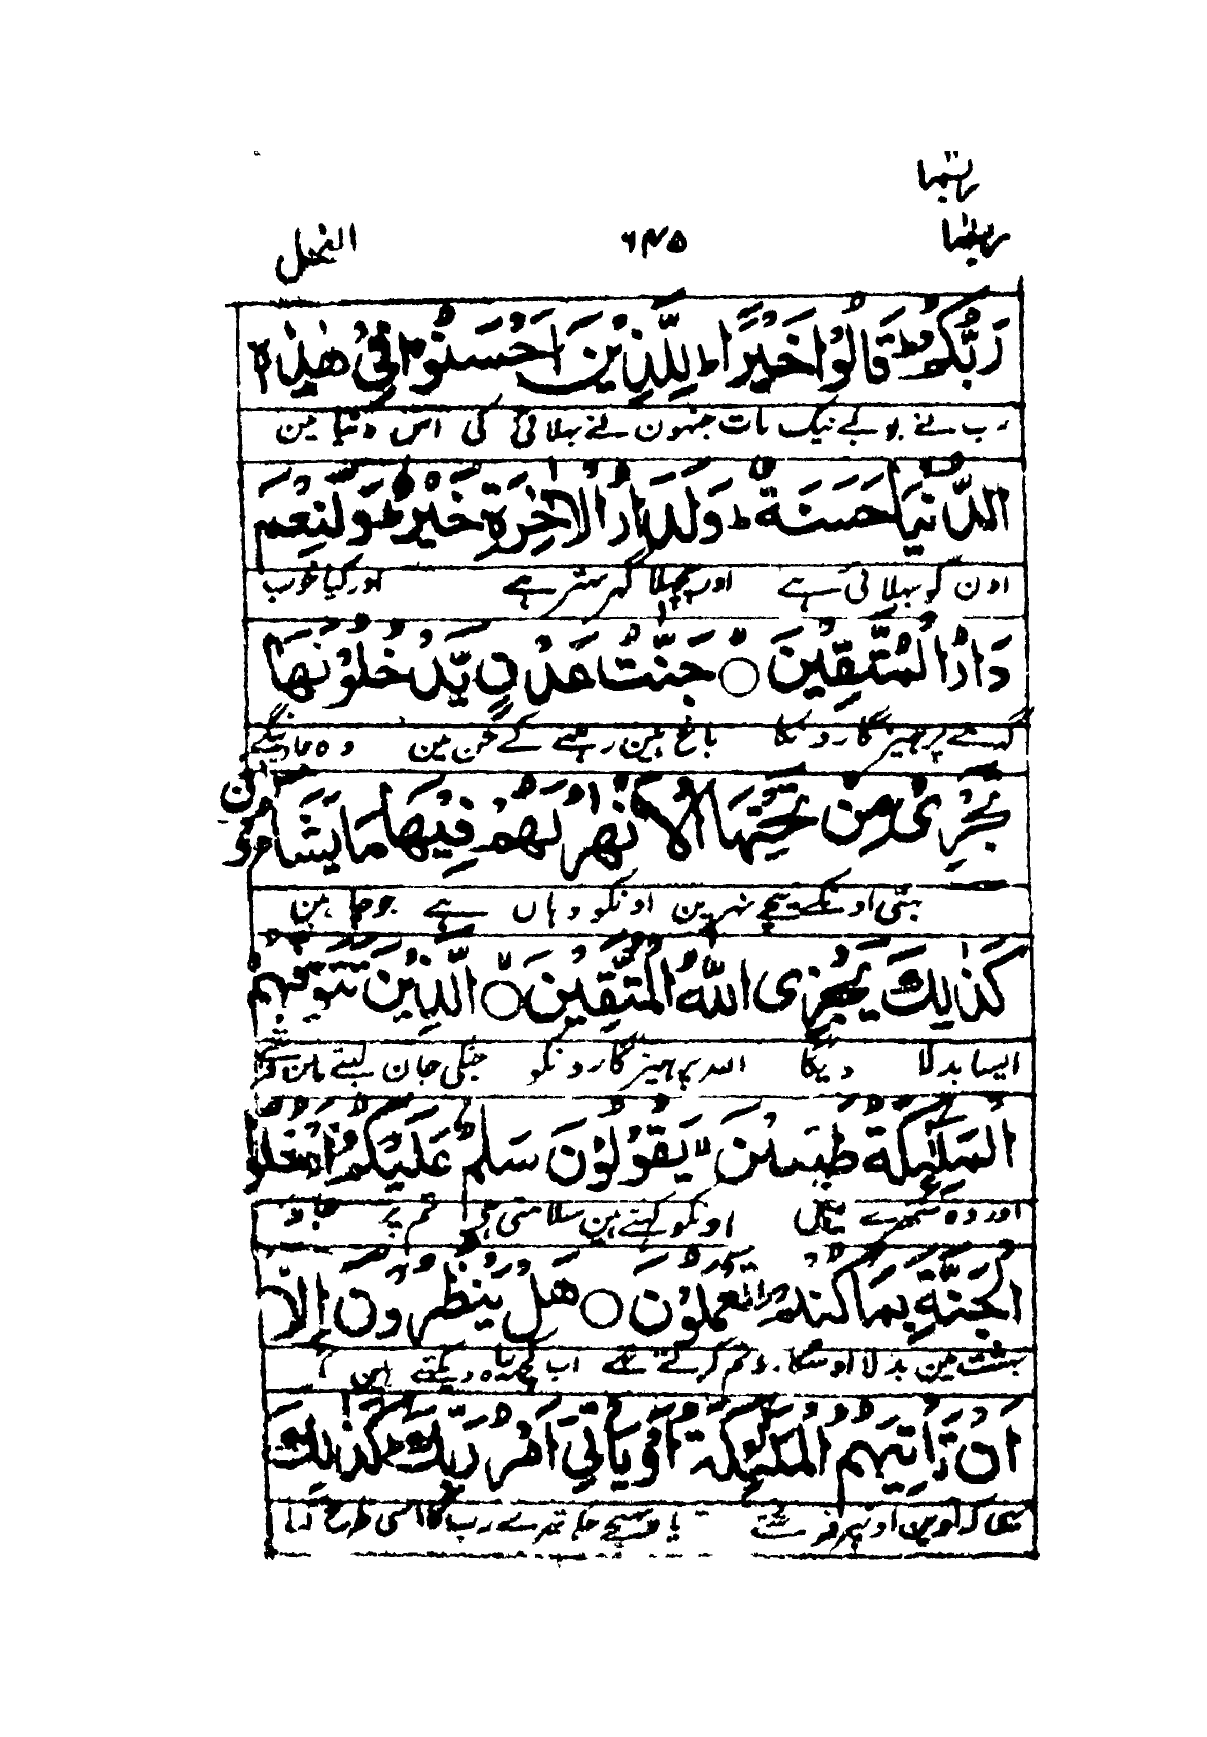 ربما
ربما ۶۴۵ النحل
رَبُّكُمْ ؕ قَالُوْا خَيْرًا ؕ لِلَّذِيْنَ اَحْسَنُوْا فِيْ هٰذِهِ
رب نے بولے نیک بات جنہون نے بہلائی کی اس دنیا مین
الدُّنْيَا حَسَنَةٌ ؕ وَلَدَارُ الْاٰخِرَةِ خَيْرٌ ؕ وَلَنِعْمَ
اون کو بہلائی ہے اور پچہلا گہر بہتر ہے اور کیا خوب
دَارُ الْمُتَّقِيْنَ ۙ○ جَنّٰتُ عَدْنٍ يَّدْخُلُوْنَهَا
گہر ہے پرہیزگارونکا باغ ہین رہنے کے جن مین وہ جاوینگے
تَجْرِيْ مِنْ تَحْتِهَا الْاَنْهٰرُ لَهُمْ فِيْهَا مَا يَشَآءُوْنَ
بہتی اونکے نیچے نہرین اونکو وہان ہے جو چاہین
كَذٰلِكَ يَجْزِي اللّٰهُ الْمُتَّقِيْنَ ۙ○ الَّذِيْنَ تَتَوَفّٰىهُمُ
ایسا بدلا دیگا اللہ پرہیزگارونکو جنکی جان لیتے ہین فرشتے
الْمَلٰٓئِكَةُ طَيِّبِيْنَ ۙ يَقُوْلُوْنَ سَلٰمٌ عَلَيْكُمُ ادْخُلُوا
اور وہ ستہرے ہین اونکو کہتے ہین سلامتی ہے تم پر جاؤ
الْجَنَّةَ بِمَا كُنْتُمْ تَعْمَلُوْنَ ○ هَلْ يَنْظُرُوْنَ اِلَّآ
بہشت مین بدلا اوسکا جو تم کرتے تہے اب کچہ راہ دیکتے ہین
اَنْ تَاْتِيَهُمُ الْمَلٰٓئِكَةُ اَوْ يَاْتِيَ اَمْرُ رَبِّكَ ؕ كَذٰلِكَ
یہی کہ آوین اونپر فرشتے یا پہنچے حکم تیرے رب کا اسی طرح کیا